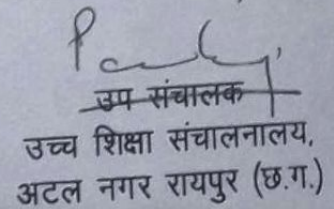 उप संचालक
उच्च शिक्षा संचालनालय,
अटल नगर रायपुर (छ.ग.)